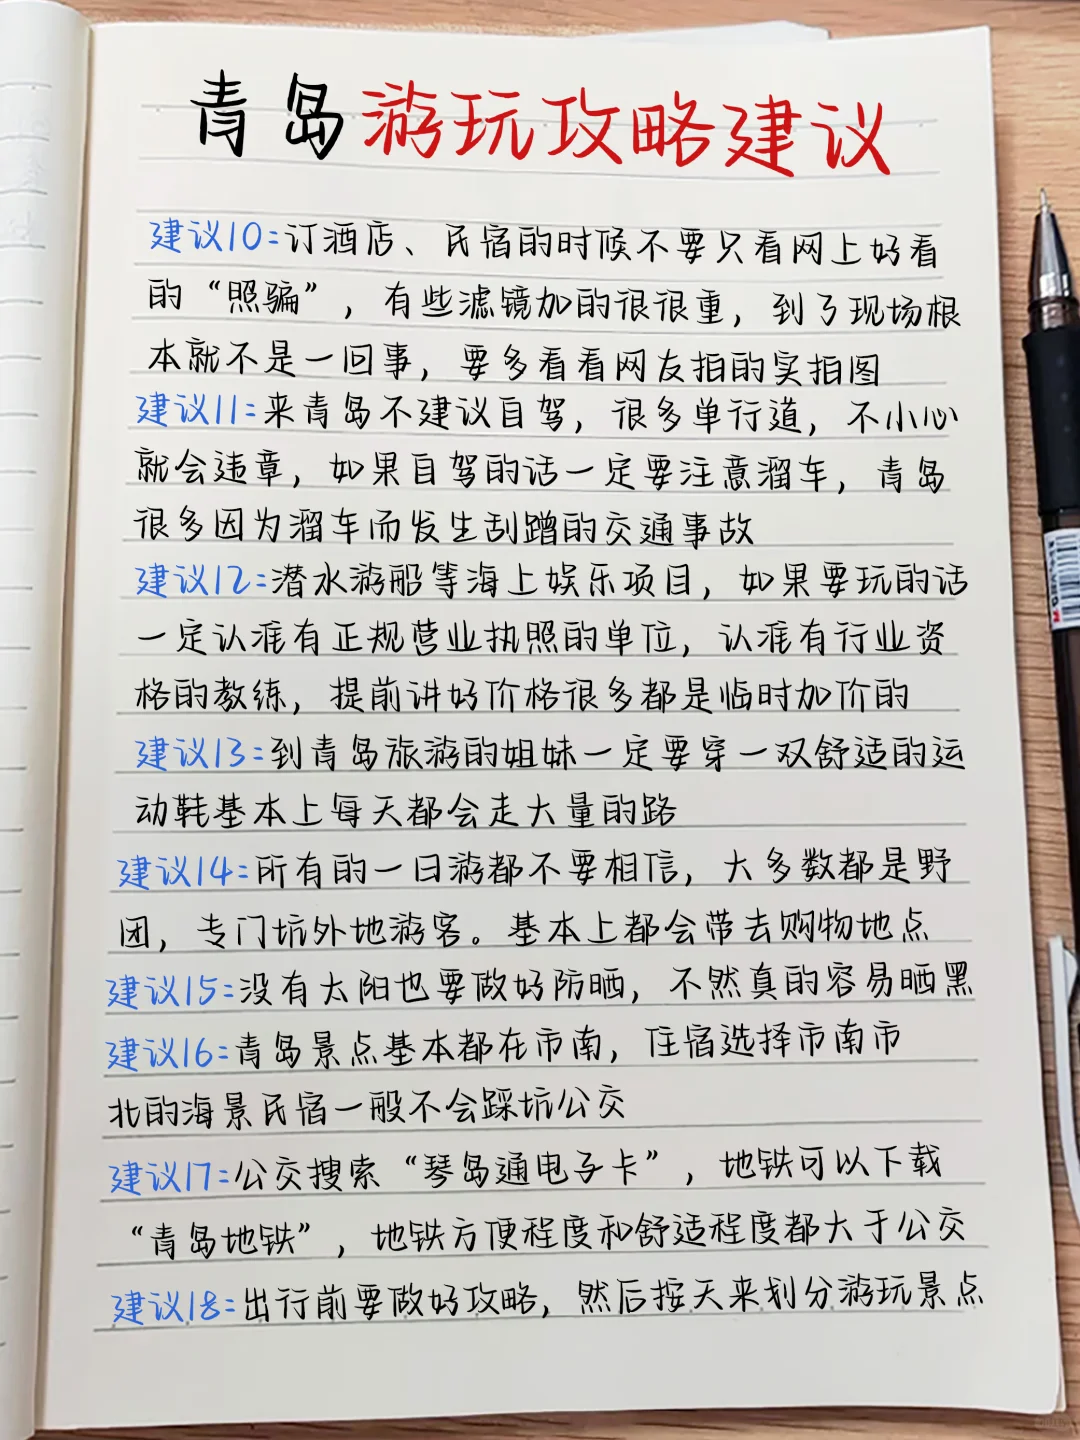 青岛游玩攻略建议
建议10:订酒店、民宿的时候不要只看网上好看
的“照骗”，有些滤镜加的很很重，到了现场根
本就不是一回事，要多看看网友拍的实拍图
建议11:来青岛不建议自驾，很多单行道，不小心
就会违章，如果自驾的话一定要注意溜车，青岛
很多因为溜车而发生刮蹭的交通事故
建议12:潜水游船等海上娱乐项目，如果要玩的话
一定认准有正规营业执照的单位，认准有行业资
格的教练，提前讲好价格很多都是临时加价的
建议13:到青岛旅游的姐妹一定要穿一双舒适的运
动鞋基本上每天都会走大量的路
建议14:所有的一日游都不要相信，大多数都是野
团，专门坑外地游客。基本上都会带去购物地点
建议15:没有太阳也要做好防晒，不然真的容易晒黑
建议16:青岛景点基本都在市南，住宿选择市南市
北的海景民宿一般不会踩坑公交
建议17:公交搜索“琴岛通电子卡”，地铁可以下载
“青岛地铁”，地铁方便程度和舒适程度都大于公交
建议18:出行前要做好攻略，然后按天来划分游玩景点